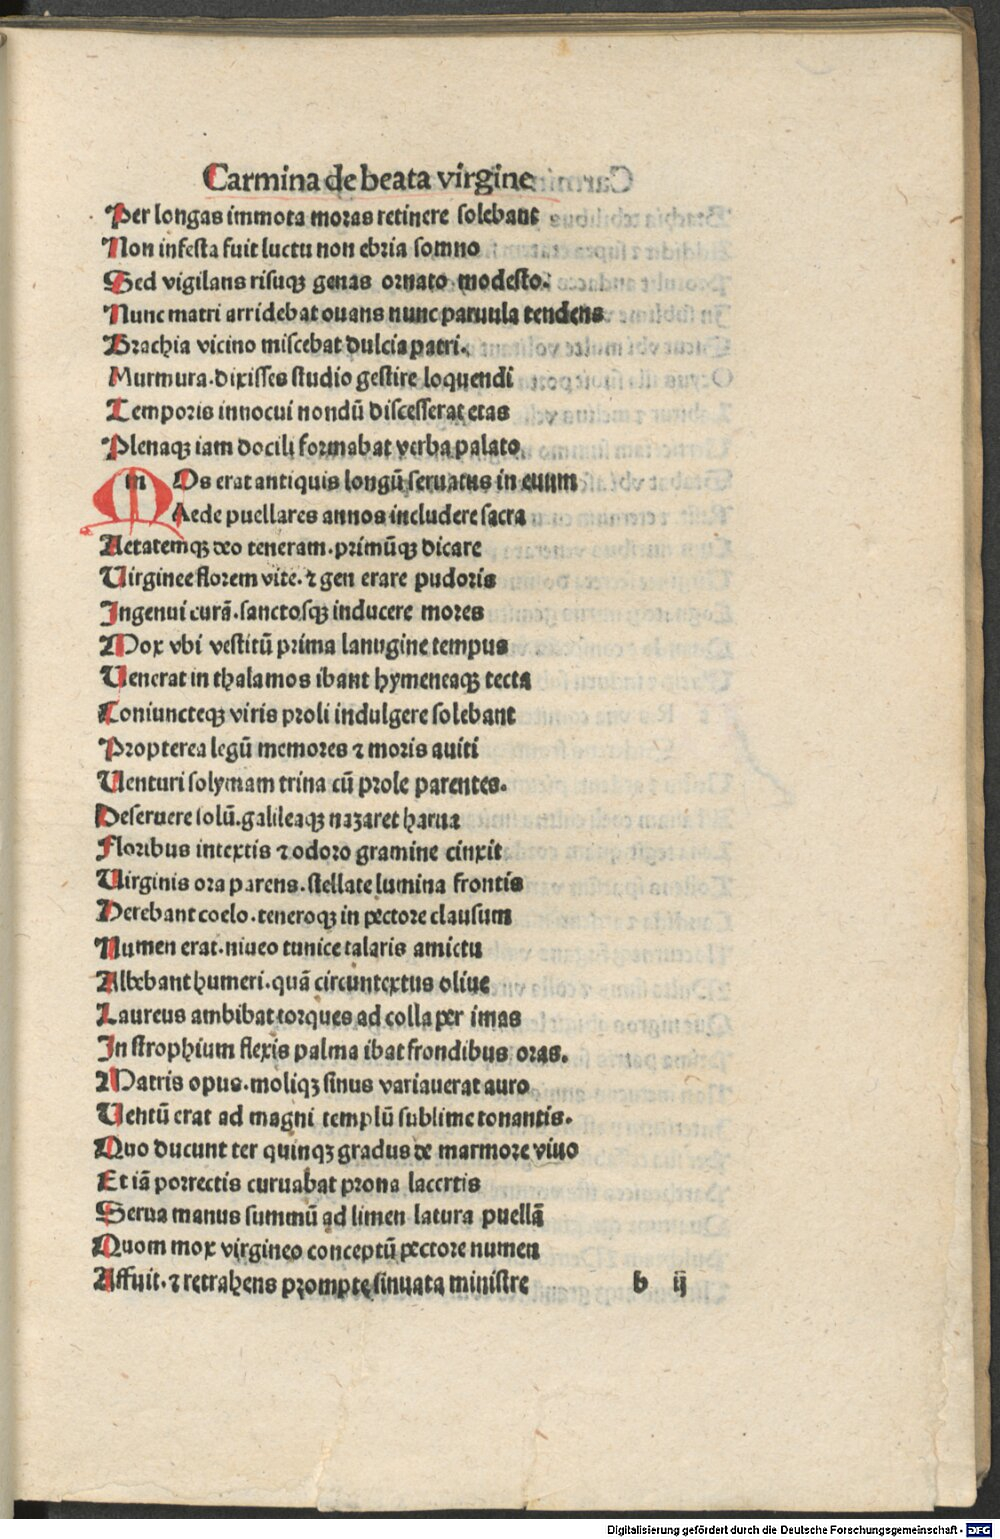 Carmina de beata virgine
Per longas immota moras retinere solebant
Non infesta fuit luctu non ebria somno
Sed vigilans risuqꝫ genas ornato modesto.
Nunc matri arridebat ouans nunc paruula tendens
Brachia vicino miscebat dulcia patri.
Murmura. dixisses studio gestire loquendi
Temporis innocui nondū discesserat etas
Plenaqꝫ iam docili formabat verba palato
m Os erat antiquis longū seruatus in euum
Aede puellares annos includere sacra
Aetatemqꝫ deo teneram. primūqꝫ dicare
Uirginee florem vite. ⁊ gen erare pudoris
Ingenui curā. sanctosqꝫ inducere mores
Mox vbi vestitū prima lanugine tempus
Uenerat in thalamos ibant hymeneaqꝫ tecta
Coniuncteqꝫ viris proli indulgere solebant
Propterea legū memores ⁊ moris auiti
Uenturi solymam trina cū prole parentes.
Deseruere solū. galileaqꝫ nazaret harua
Floribus intextis ⁊ odoro gramine cinxit
Uirginis ora parens. stellate lumina frontis
Herebant coelo. teneroqꝫ in pectore clausum
Numen erat. niueo tunice talaris amictu
Albebant humeri. quā circuntextus oliue
Laureus ambibat torques ad colla per imas
In strophium flexis palma ibat frondibus oras.
Matris opus. moliqꝫ sinus variauerat auro
Uentū erat ad magni templū sublime tonantis.
Quo ducunt ter quinqꝫ gradus de marmore viuo
Et iā porrectis curuabat prona lacertis
Serua manus summū ad limen latura puellā
Quom mox virgineo conceptū pectore numen
Affuit. ⁊ retrahens prompte sinuata ministre
b ij
Digitalisierung gefördert durch die Deutsche Forschungsgemeinschaft - DFG